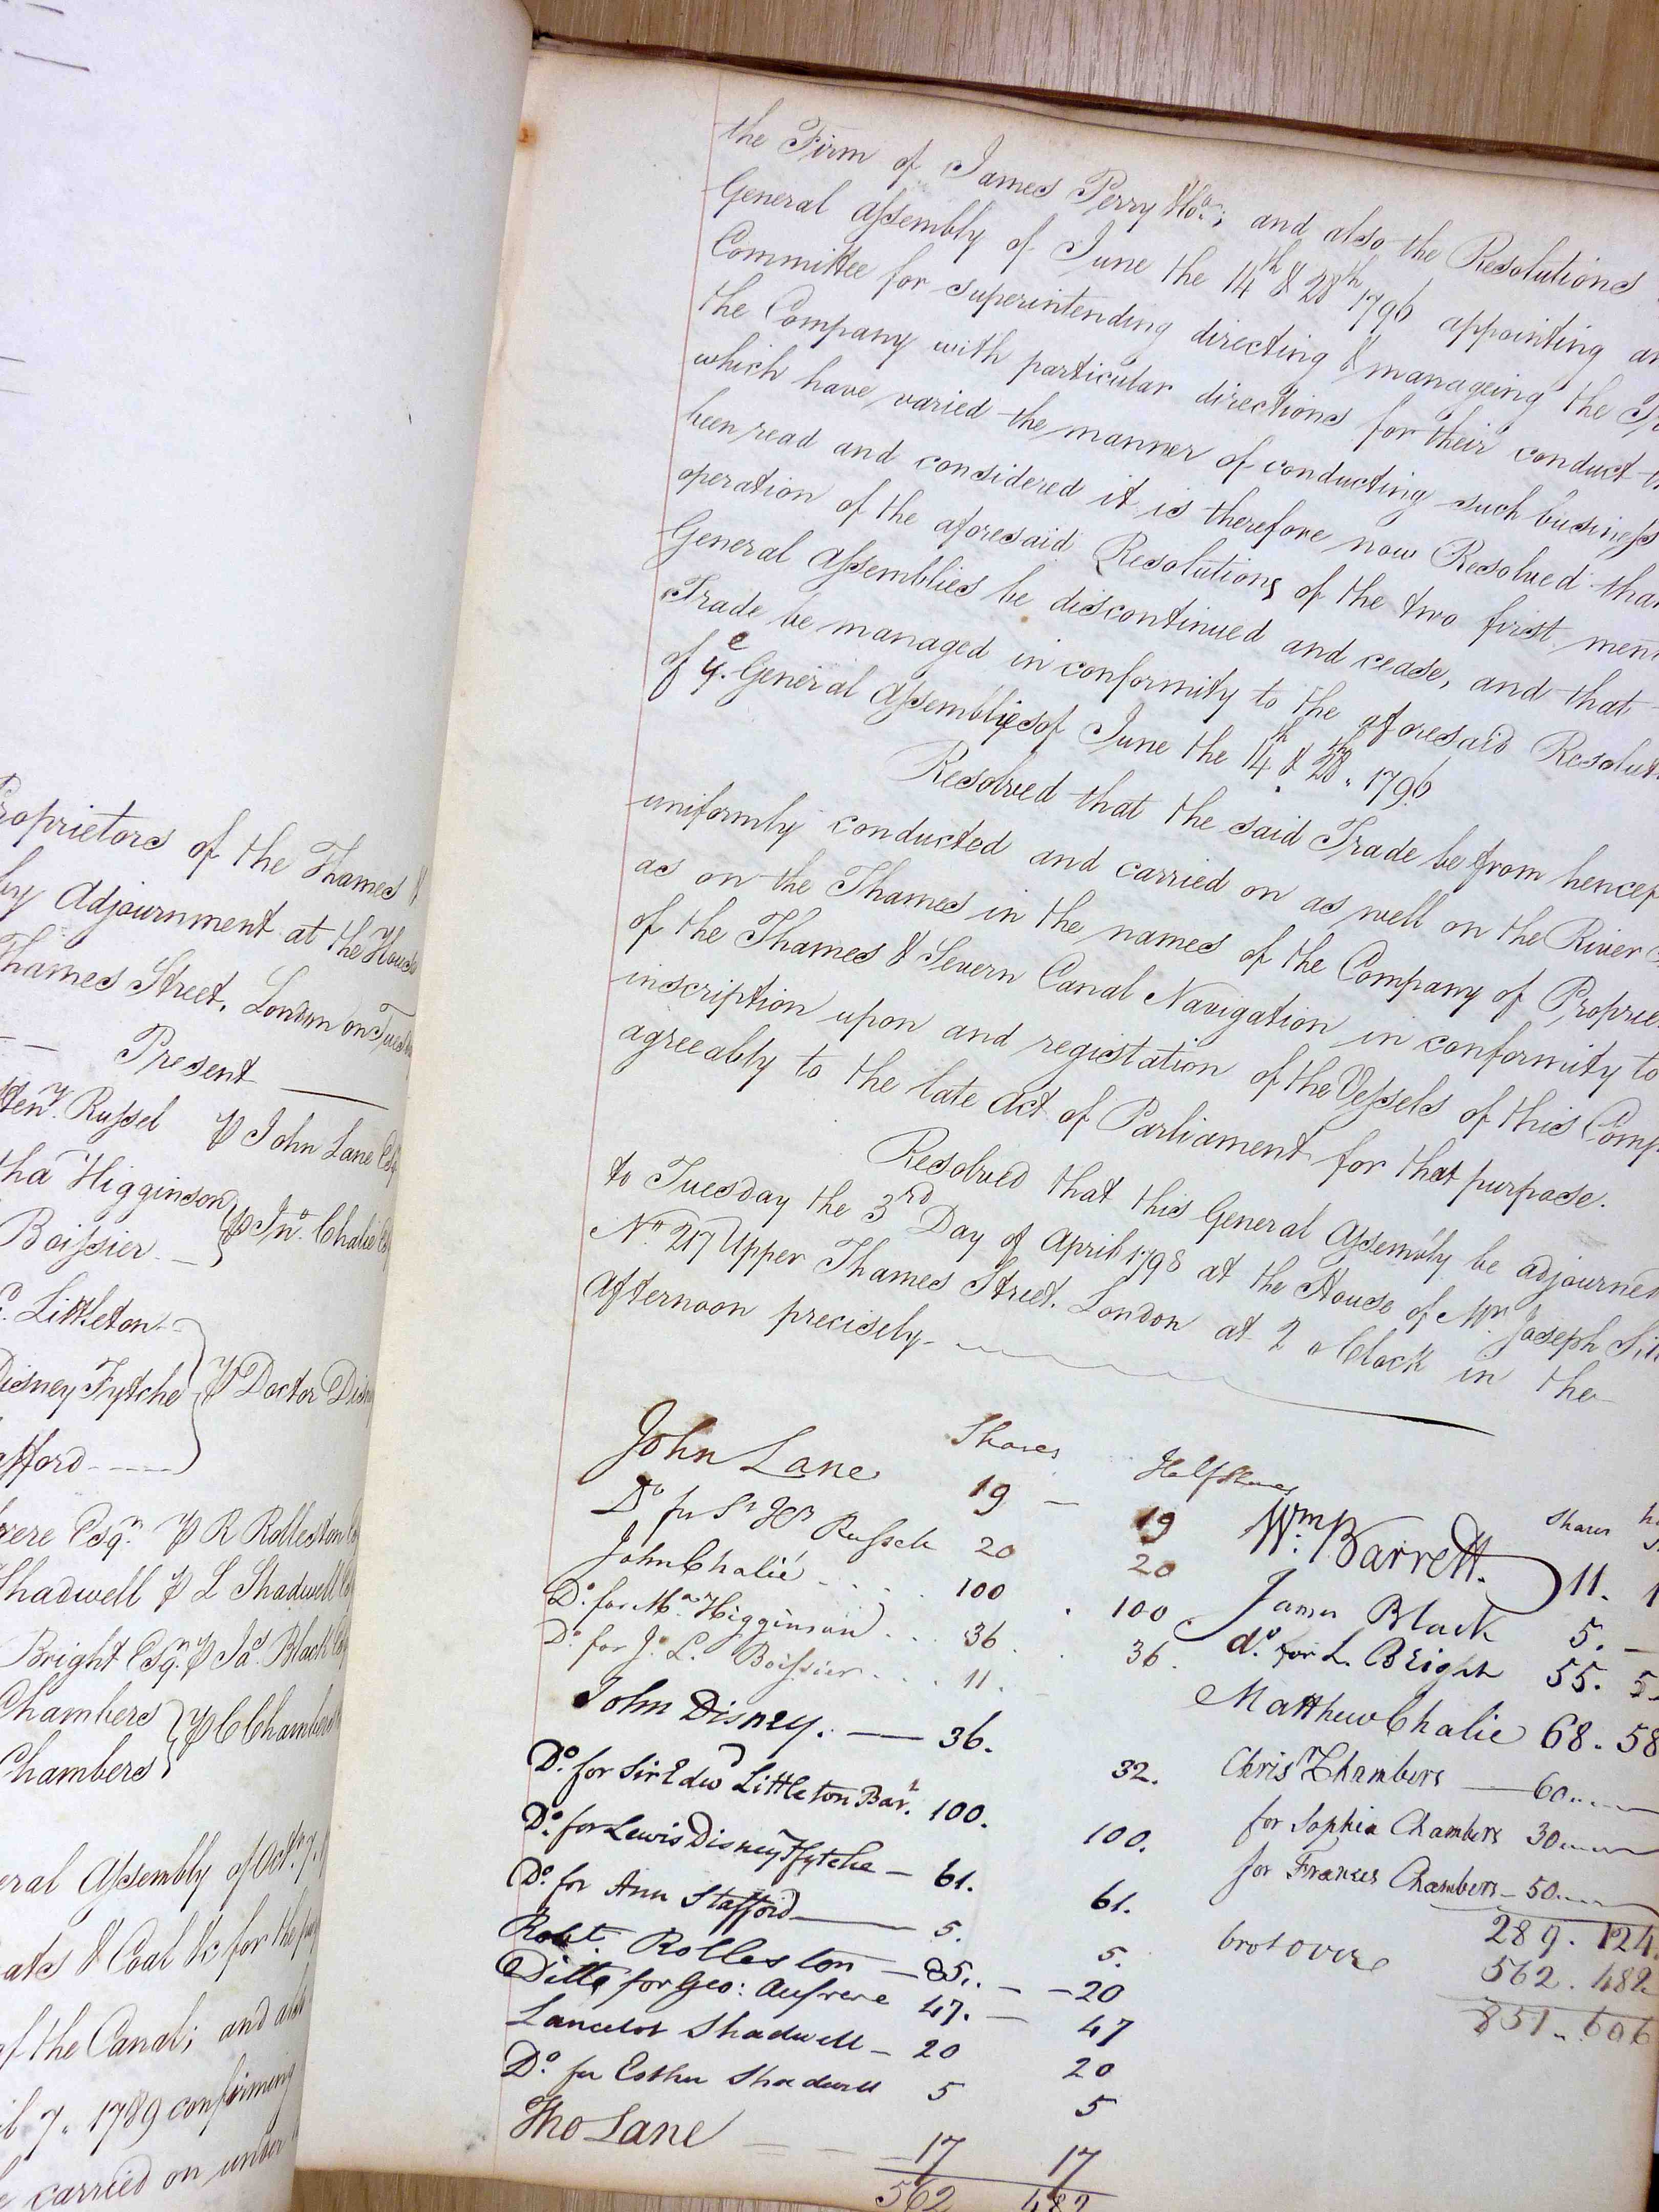 Proprietors of the Thames &
by Adjournment at the House
Thames Street, London on Tues
Present
Henʸ. Russel ⅌ John Lane Esqʳ
tha Higginson
Boissier ⅌ Jnᵒ. Chalie Esq
Littleton
Disney Fytche ⅌ Doctor Disn
afford
rere Esqʳ. ⅌ R Rolleston Esq
Shadwell ⅌ L Shadwell Esq
Bright Esqʳ. ⅌ Jaˢ. Black Esq
Chambers ⅌ C Chambers
Chambers
eral Assembly of Octʳ. 7.
ats & Coal &c for the pur
of the Canal; and also
il 7. 1789 confirming
carried on under
the Firm of James Perry &Co.; and also the Resolutions
General Assembly of June the 14th & 28th 1796 appointing an
Committee for superintending directing & manageing the Tr
the Company with particular directions for their conduct th
which have varied the manner of conducting such business
been read and considered it is therefore now Resolved that
operation of the aforesaid Resolutions of the two first men
General Assemblies be discontinued and cease, and that
Trade be managed in conformity to the aforesaid Resolut
of yᵉ. General Assemblies of June the 14th & 28th. 1796
Resolved that the said Trade be from hencef
uniformly conducted and carried on as well on the River S
as on the Thames in the names of the Company of Proprie
of the Thames & Severn Canal Navigation in conformity to
inscription upon and registation of the Vessels of this Comp
agreeably to the late Act of Parliament for that purpose.
Resolved that this General Assembly be adjourned
to Tuesday the 3rd Day of April 1798 at the House of Mr Joseph Sil
No. 217 Upper Thames Street, London at 2 o'Clock in the
Afternoon precisely
Shares Half Shares
John Lane 19 19
Dᵒ for Sr Hʸ Russell 20 20
John Chalié 100 100
Dᵒ. for Mʳˢ. Higginson 36 36
Dᵒ for J. L. Boissier 11.
John Disney. 36. 32.
Dᵒ. for Sir Edwᵈ Littleton Barᵗ. 100. 100.
Dᵒ. for Lewis Disney Ffytche 61. 61.
Dᵒ. for Ann Stafford 5. 5.
Robt Rolleston 85. 20
Ditto for Geo: Aufrere 47. 47
Lancelot Shadwell 20 20
Dᵒ. for Esther Shadwell 5 5
Tho Lane 17 17
562 482
Shares
Wm. Barrett. 11. 1
James Black 5.
dᵒ. for L. Bright 55. 5
Matthew Chalie 68. 58
Chrisʳ Chambers 60
for Sophia Chambers 30
for Frances Chambers 50
289. 124.
brot over 562. 482
851. 606